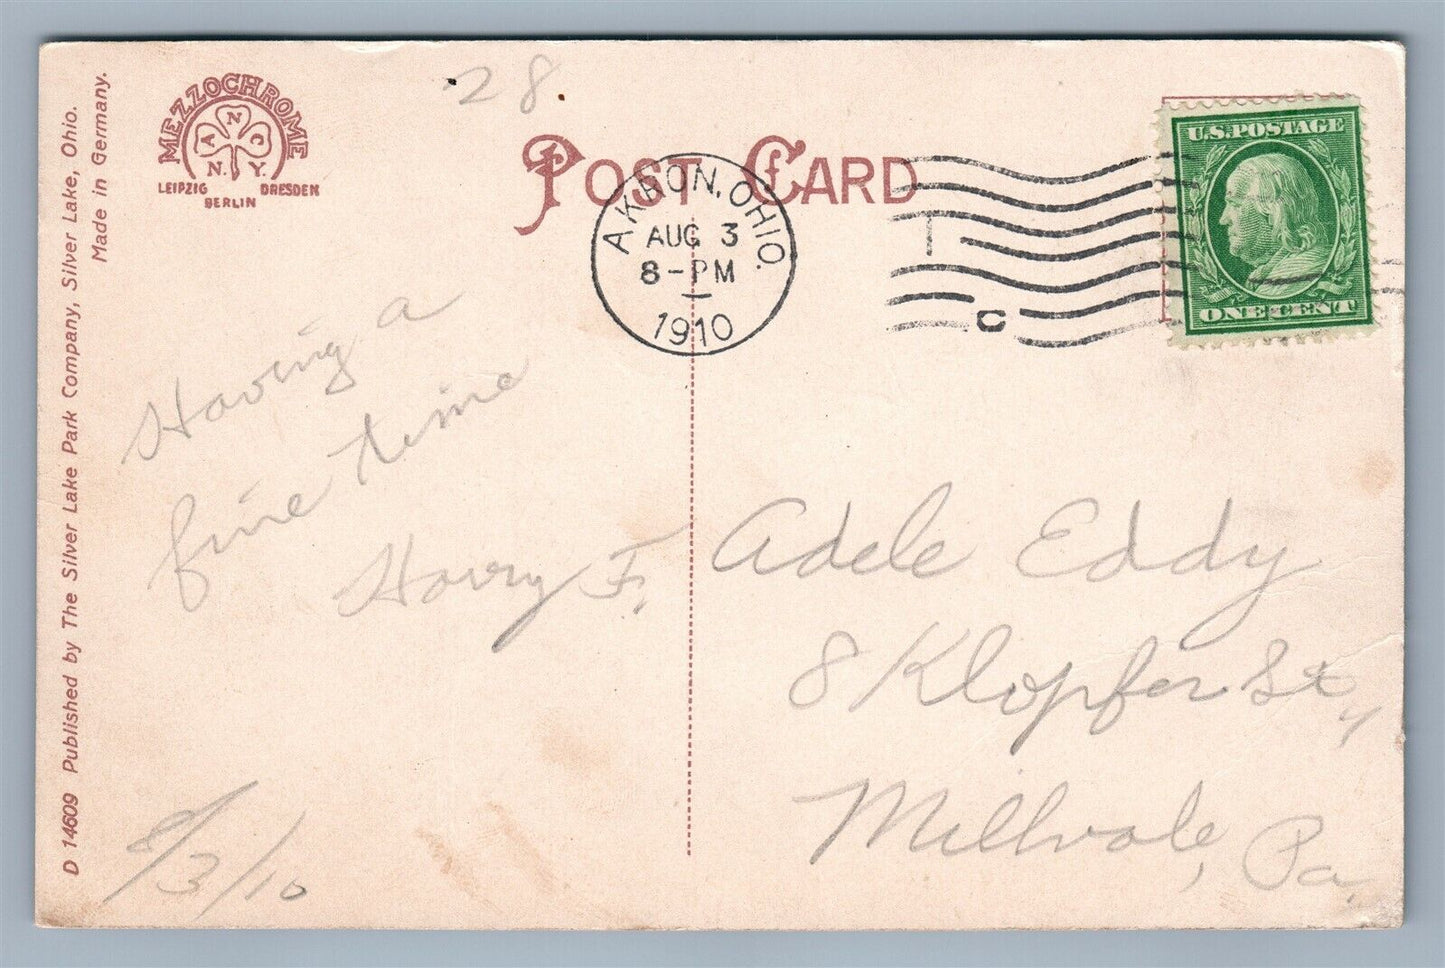 28.
MEZZOCHROME
A N C
N. Y.
LEIPZIG DRESDEN
BERLIN
POST CARD
U.S. POSTAGE
ONE CENT
AKRON, OHIO.
AUG 3
8-PM
1910
C
D 14609 Published by The Silver Lake Park Company, Silver Lake, Ohio.
Made in Germany.
Having a
fine time
Harry F.
8/3/10
Adele Eddy
8 Klopfer St,
Millvale, Pa.